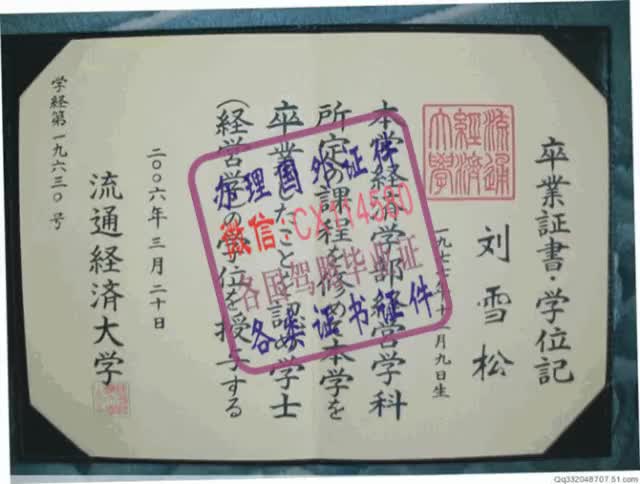 卒業証書・学位記
流通
経済
大学
刘雪松
一九七
年十
月九日生
本学経済学部経営学科
所定の課程を修め本学を
卒業したことを認め学士
(経営学)の学位を授与する
二〇〇六年三月二十日
流通経済大学
学経第一九六三〇号
办理国外证件
微信:CX114580
各国驾照毕业证
各类证书证件
Qq332048707.51.com